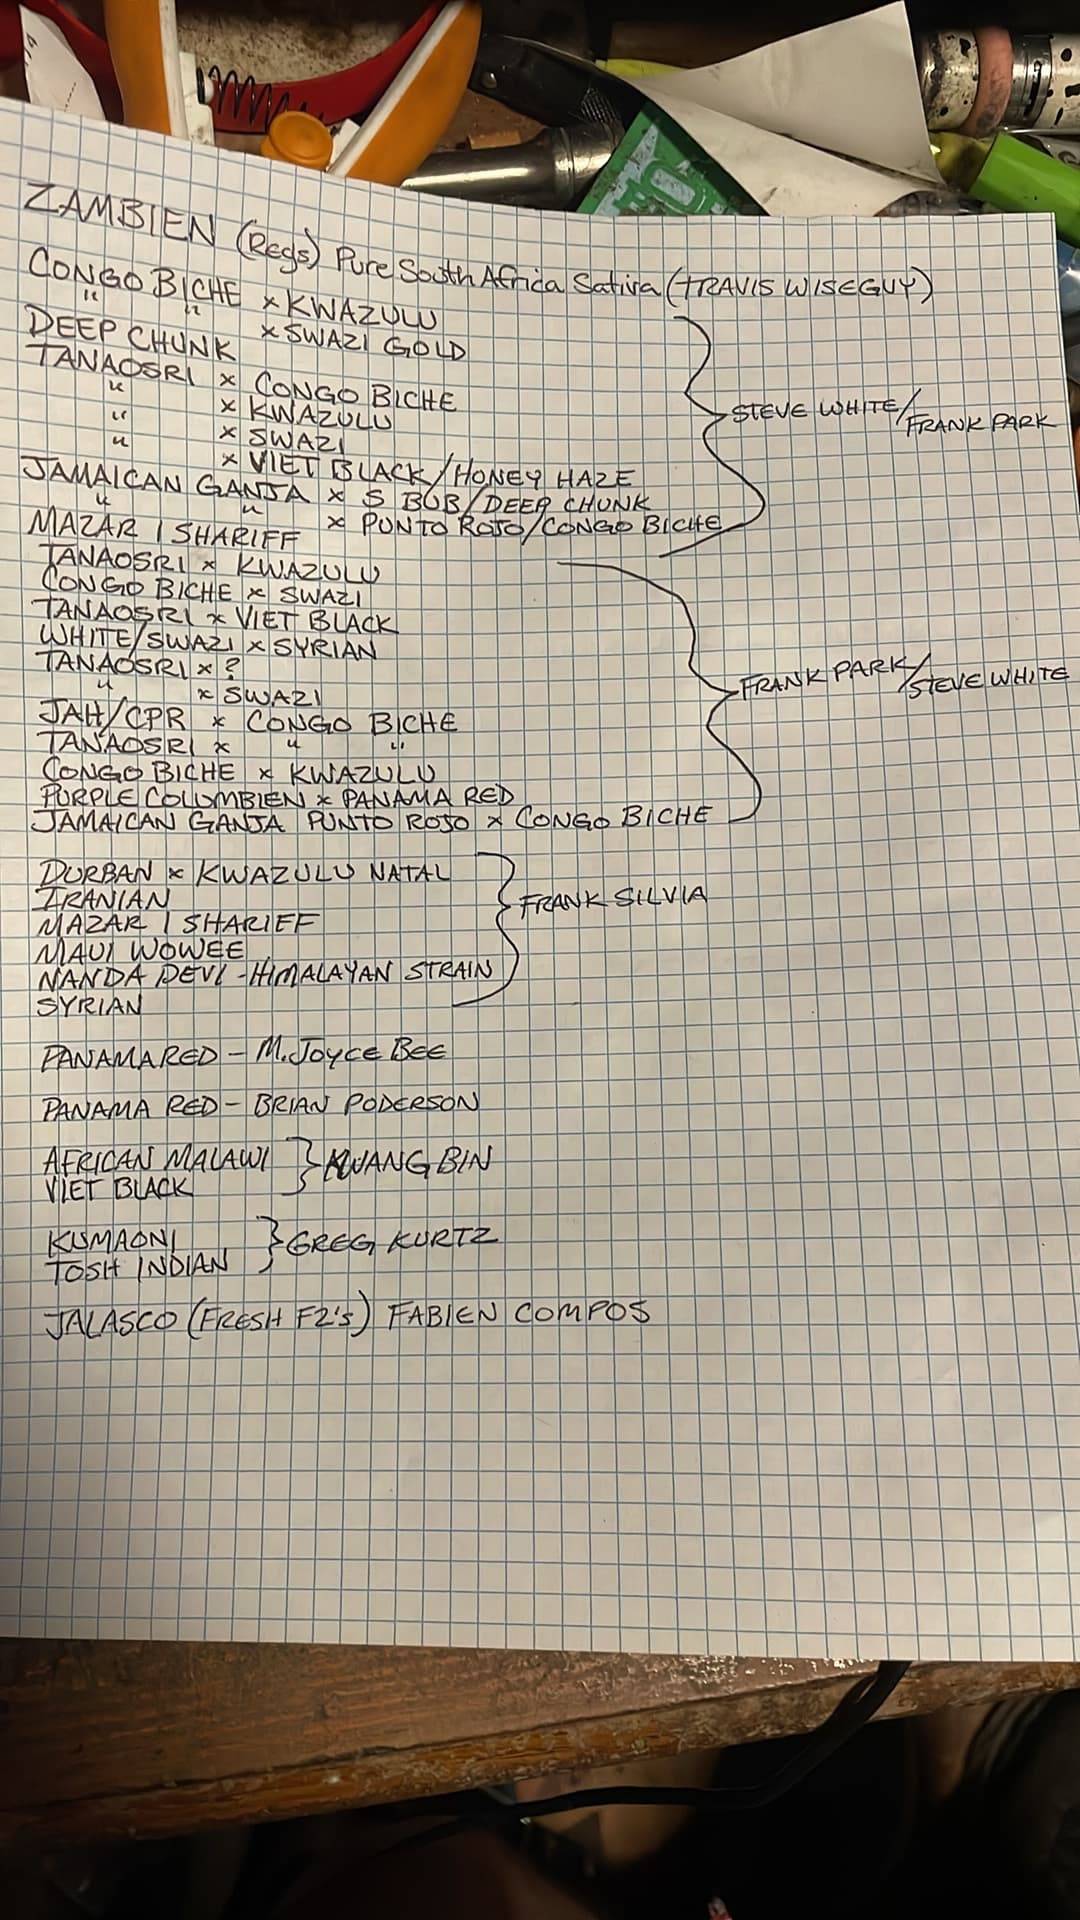 ZAMBIEN (Regs) Pure South Africa Sativa (TRAVIS WISEGUY)
CONGO BICHE x KWAZULU
" " x SWAZI GOLD
DEEP CHUNK
TANAOSRI x CONGO BICHE
" x KWAZULU
" x SWAZI
" x VIET BLACK/HONEY HAZE
JAMAICAN GANJA x S BUB/DEEP CHUNK
" " x PUNTO ROJO/CONGO BICHE
MAZAR I SHARIFF
STEVE WHITE/
FRANK PARK
TANAOSRI x KWAZULU
CONGO BICHE x SWAZI
TANAOSRI x VIET BLACK
WHITE/SWAZI x SYRIAN
TANAOSRI x ?
" x SWAZI
JAH/CPR x CONGO BICHE
TANAOSRI x " "
CONGO BICHE x KWAZULU
PURPLE COLUMBIEN x PANAMA RED
JAMAICAN GANJA PUNTO ROJO x CONGO BICHE
FRANK PARK/
STEVE WHITE
DURBAN x KWAZULU NATAL
IRANIAN
MAZAR I SHARIEFF
MAUI WOWEE
NANDA DEVI - HIMALAYAN STRAIN
SYRIAN
FRANK SILVIA
PANAMA RED - M. JOYCE BEE
PANAMA RED - BRIAN PODERSON
AFRICAN MALAWI
VIET BLACK
KWANG BIN
KUMAONI
TOSH INDIAN
GREG KURTZ
JALASCO (FRESH F2's) FABIEN COMPOS